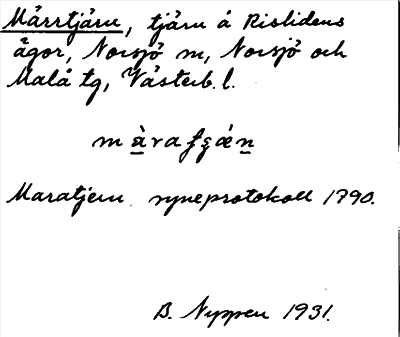 Mårrtjärn, tjärn å Rislidens
ägor, Norsjö sn, Norsjö och
Malå tg, Västerb. l.
Maratjern syneprotokoll 1790.
B. Nyppen 1931.